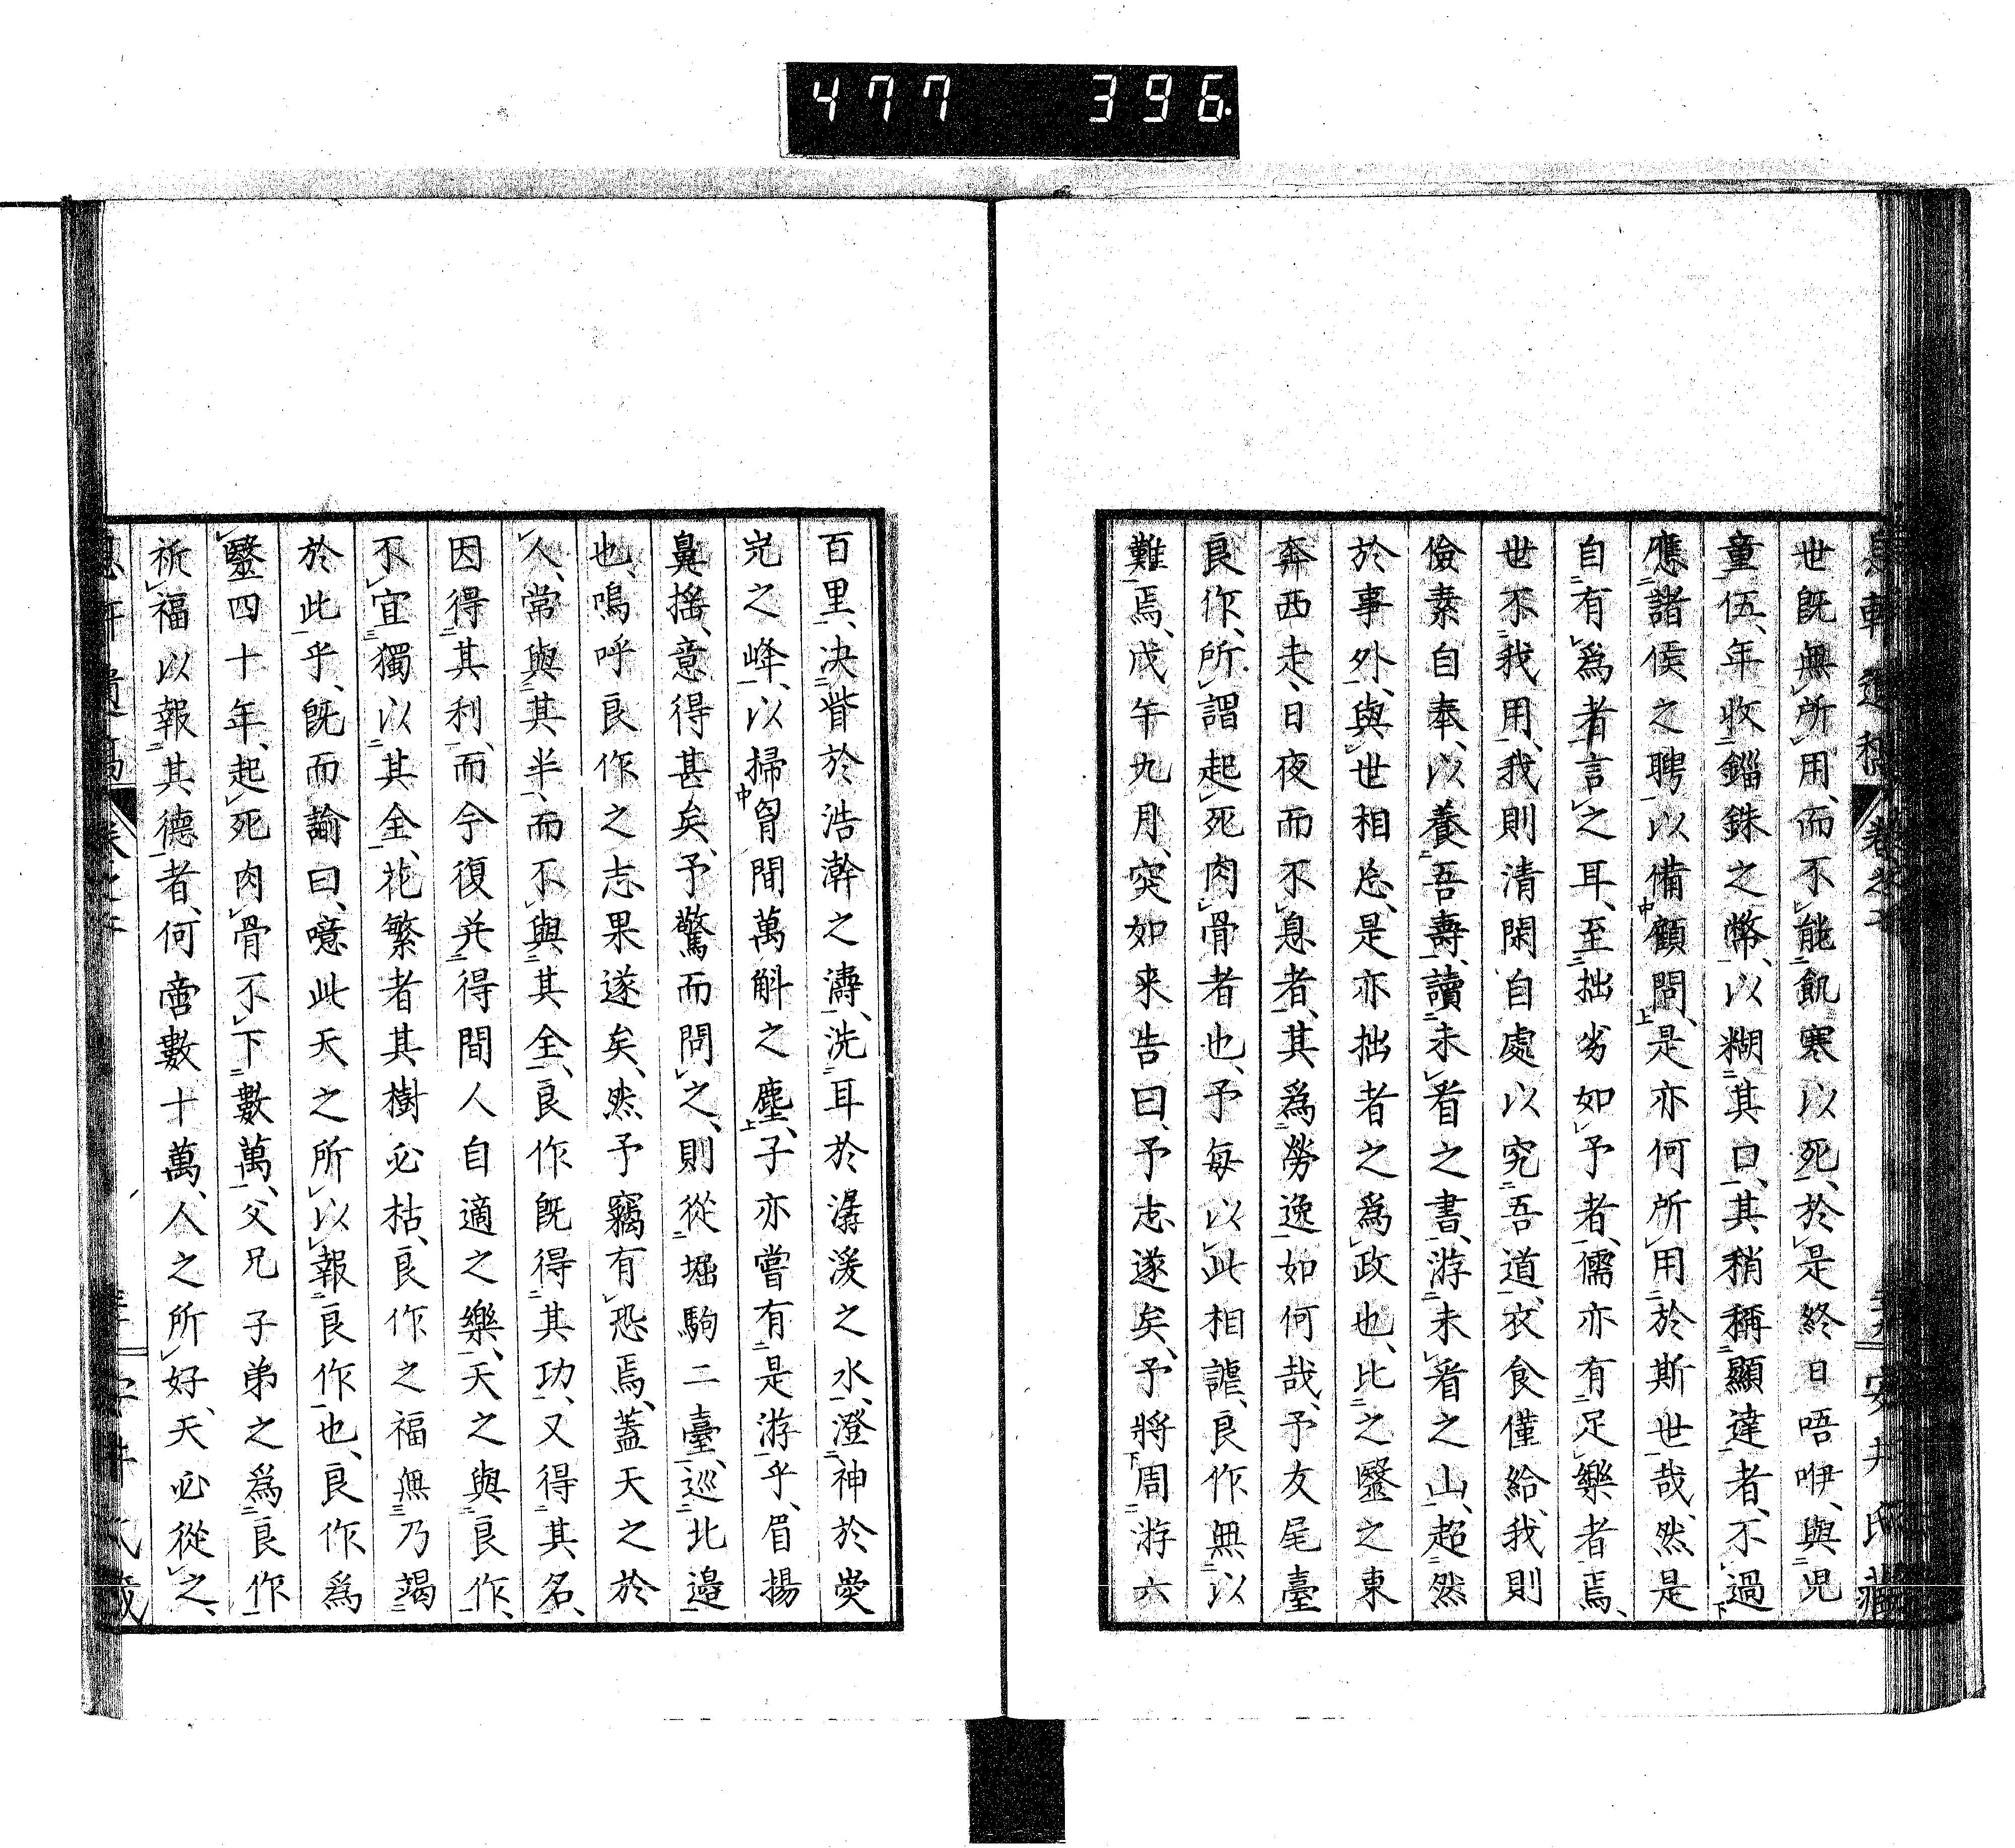 477 396
世既無所用、而不能飢寒以死、於是終日唔咿、與児
童伍、年收錙銖之幣、以糊其口、其稍稱顯達者、不過
應諸侯之聘以備顧問、是亦何所用於斯世哉、然是
自有爲者言之耳、至拙劣如予者、儒亦有足樂者焉、
世不我用、我則清閑自處以究吾道、衣食僅給、我則
儉素自奉、以養吾壽、讀未看之書、游未看之山、超然
於事外、與世相忘、是亦拙者之爲政也、比之毉之東
奔西走、日夜而不息者、其爲勞逸如何哉、予友尾臺
良作、所謂起死肉骨者也、予每以此相謔、良作無以
難焉、戊午九月、突如来告曰、予志遂矣、予將周游六
百里、決眥於浩澣之濤、洗耳於潺湲之水、澄神於㟐
岏之峰、以掃胷間萬斛之塵、子亦嘗有是游乎、眉揚
鼻搖、意得甚矣、予驚而問之、則從堀駒二臺、巡北邉
也、嗚呼良作之志果遂矣、然予竊有恐焉、蓋天之於
人、常與其半、而不與其全、良作既得其功、又得其名、
因得其利、而今復并得間人自適之樂、天之與良作、
不宜獨以其全、花繁者其樹必枯、良作之福無乃竭
於此乎、既而諭曰、噫此天之所以報良作也、良作爲
毉四十年、起死肉骨不下數萬、父兄子弟之爲良作
祈福以報其德者、何啻數十萬、人之所好、天必從之、